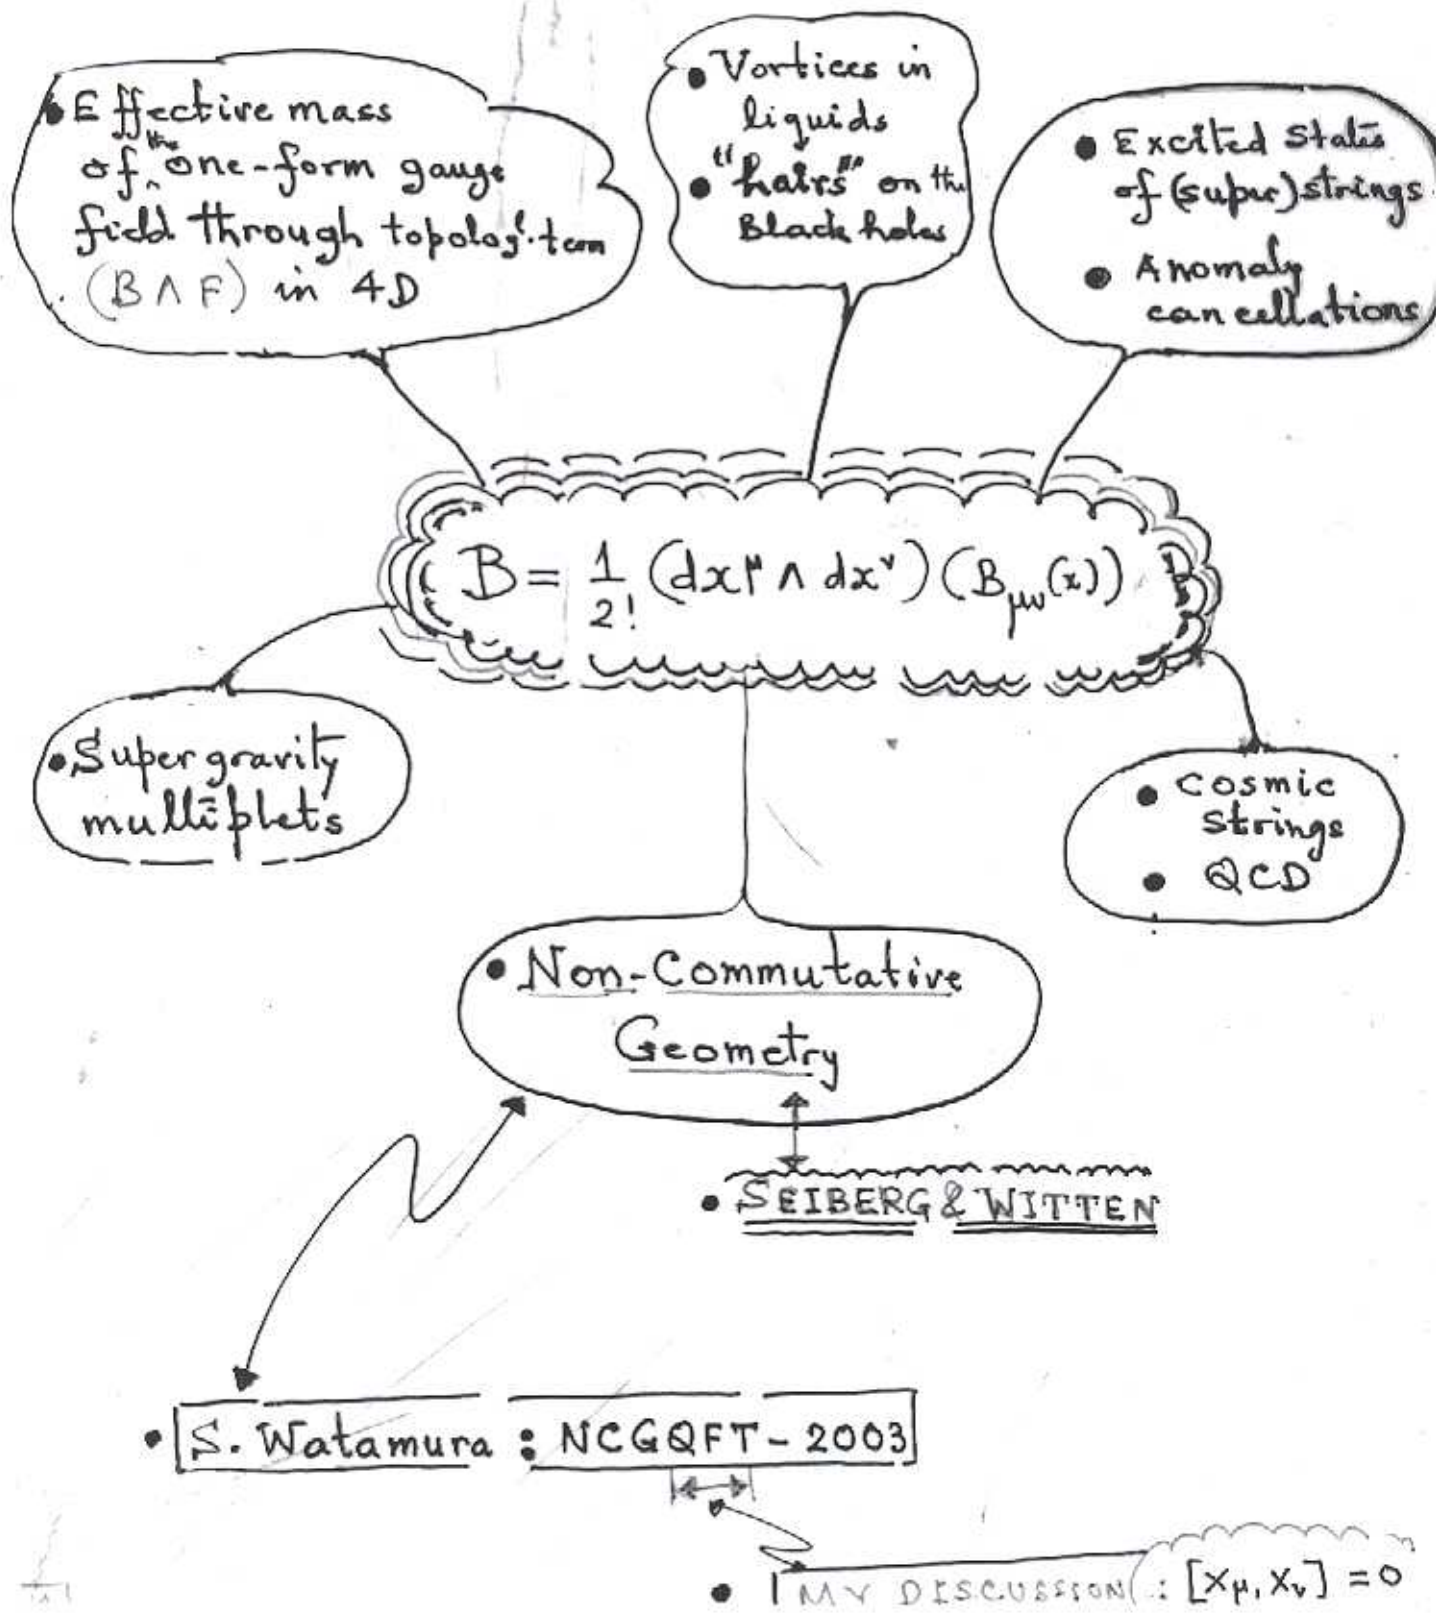 • Effective mass
of the one-form gauge
field through topolog. term
(B ∧ F) in 4D
• Vortices in
liquids
• "hairs" on the
Black holes
• Excited States
of (super)strings
• Anomaly
cancellations
B = 1/2! (dx^μ ∧ dx^ν) (B_μν(x))
• Supergravity
multiplets
• Cosmic
Strings
• QCD
• Non-Commutative
Geometry
• SEIBERG & WITTEN
• S. Watamura : NCGQFT - 2003
• MY DISCUSSION : [X_μ, X_ν] = 0